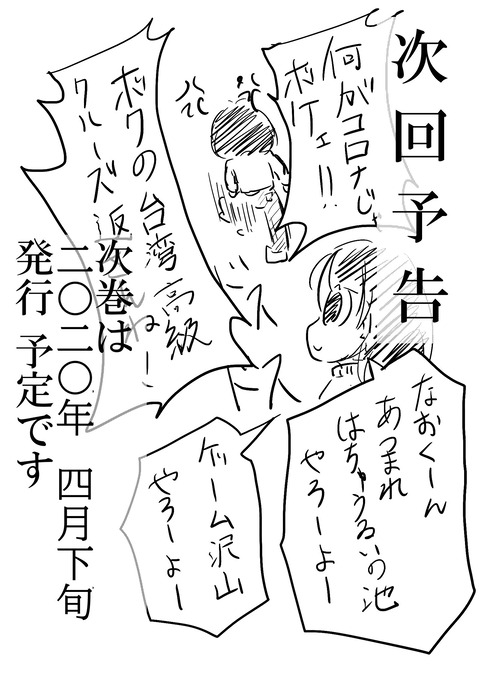 次回予告
何がコロナじゃ
ボケェ!!
ボクの台湾高級
クルーズ返
ドス
ドス
なおくーん
あつまれ
はちゅうるいの池
やろーよー
ゲーム沢山
やろーよー
次巻は
二〇二〇年 四月下旬
発行 予定です